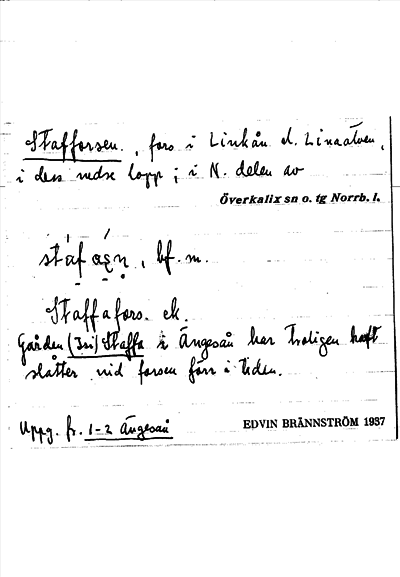 Stafforsen., fors i Linkån el. Linaälven,
i dess nedre lopp; i N. delen av
Överkalix sn o. tg Norrb. l.
bf. m.
Staffafors. ek.
Gården (Isi) Staffa i Ängeså har troligen haft
slåtter vid forsen förr i tiden.
Uppg. fr. 1-2 Ängeså
EDVIN BRÄNNSTRÖM 1937